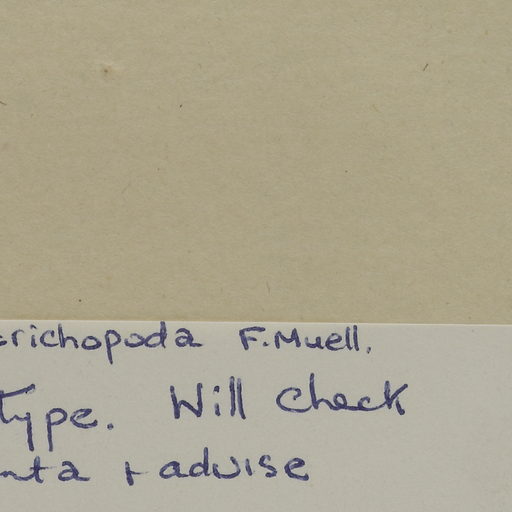 trichopoda F.Muell.
type. Will check
nta + advise